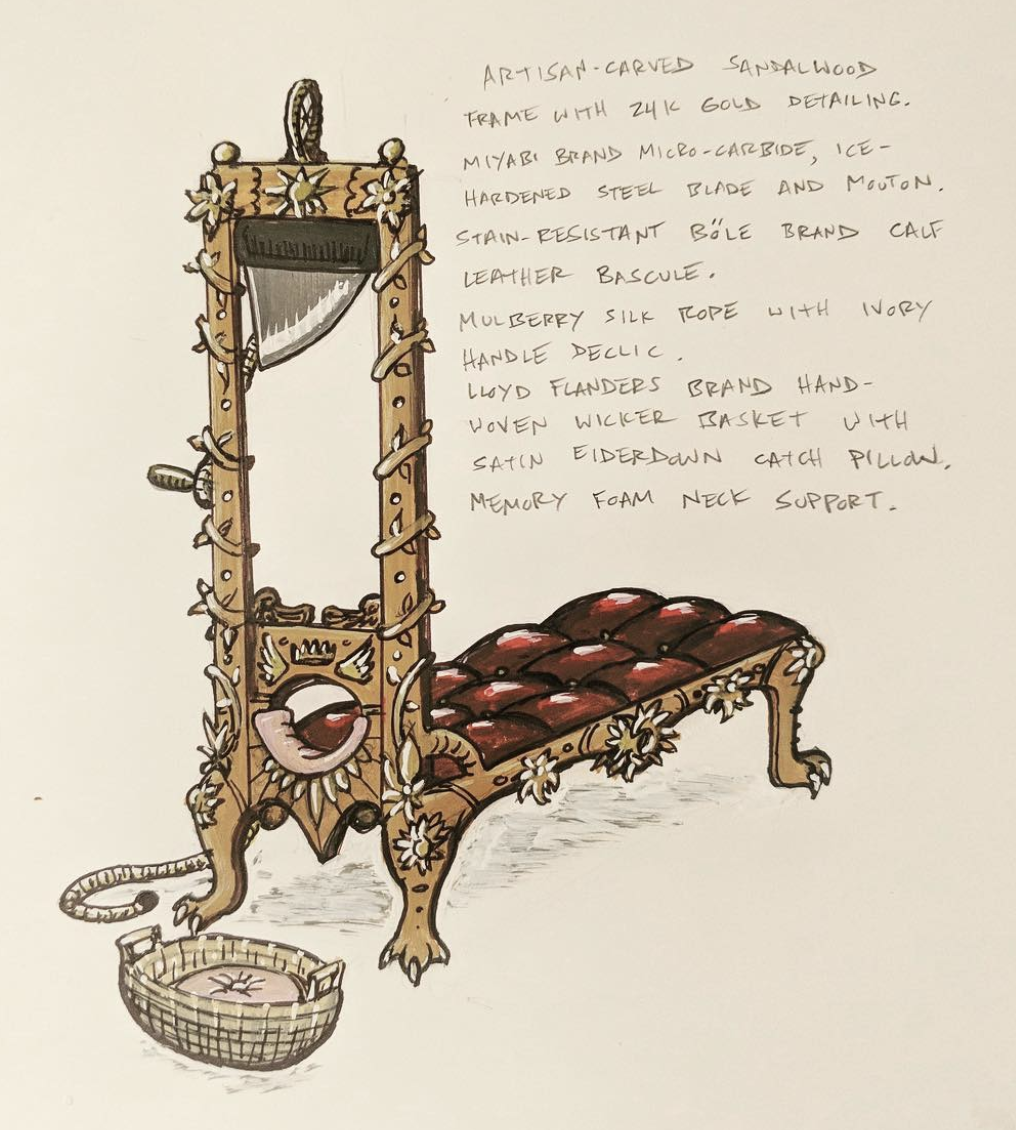 ARTISAN-CARVED SANDALWOOD
FRAME WITH 24K GOLD DETAILING.
MIYABI BRAND MICRO-CARBIDE, ICE-
HARDENED STEEL BLADE AND MOUTON.
STAIN-RESISTANT BÖLE BRAND CALF
LEATHER BASCULE.
MULBERRY SILK ROPE WITH IVORY
HANDLE DECLIC.
LLOYD FLANDERS BRAND HAND-
WOVEN WICKER BASKET WITH
SATIN EIDERDOWN CATCH PILLOW.
MEMORY FOAM NECK SUPPORT.